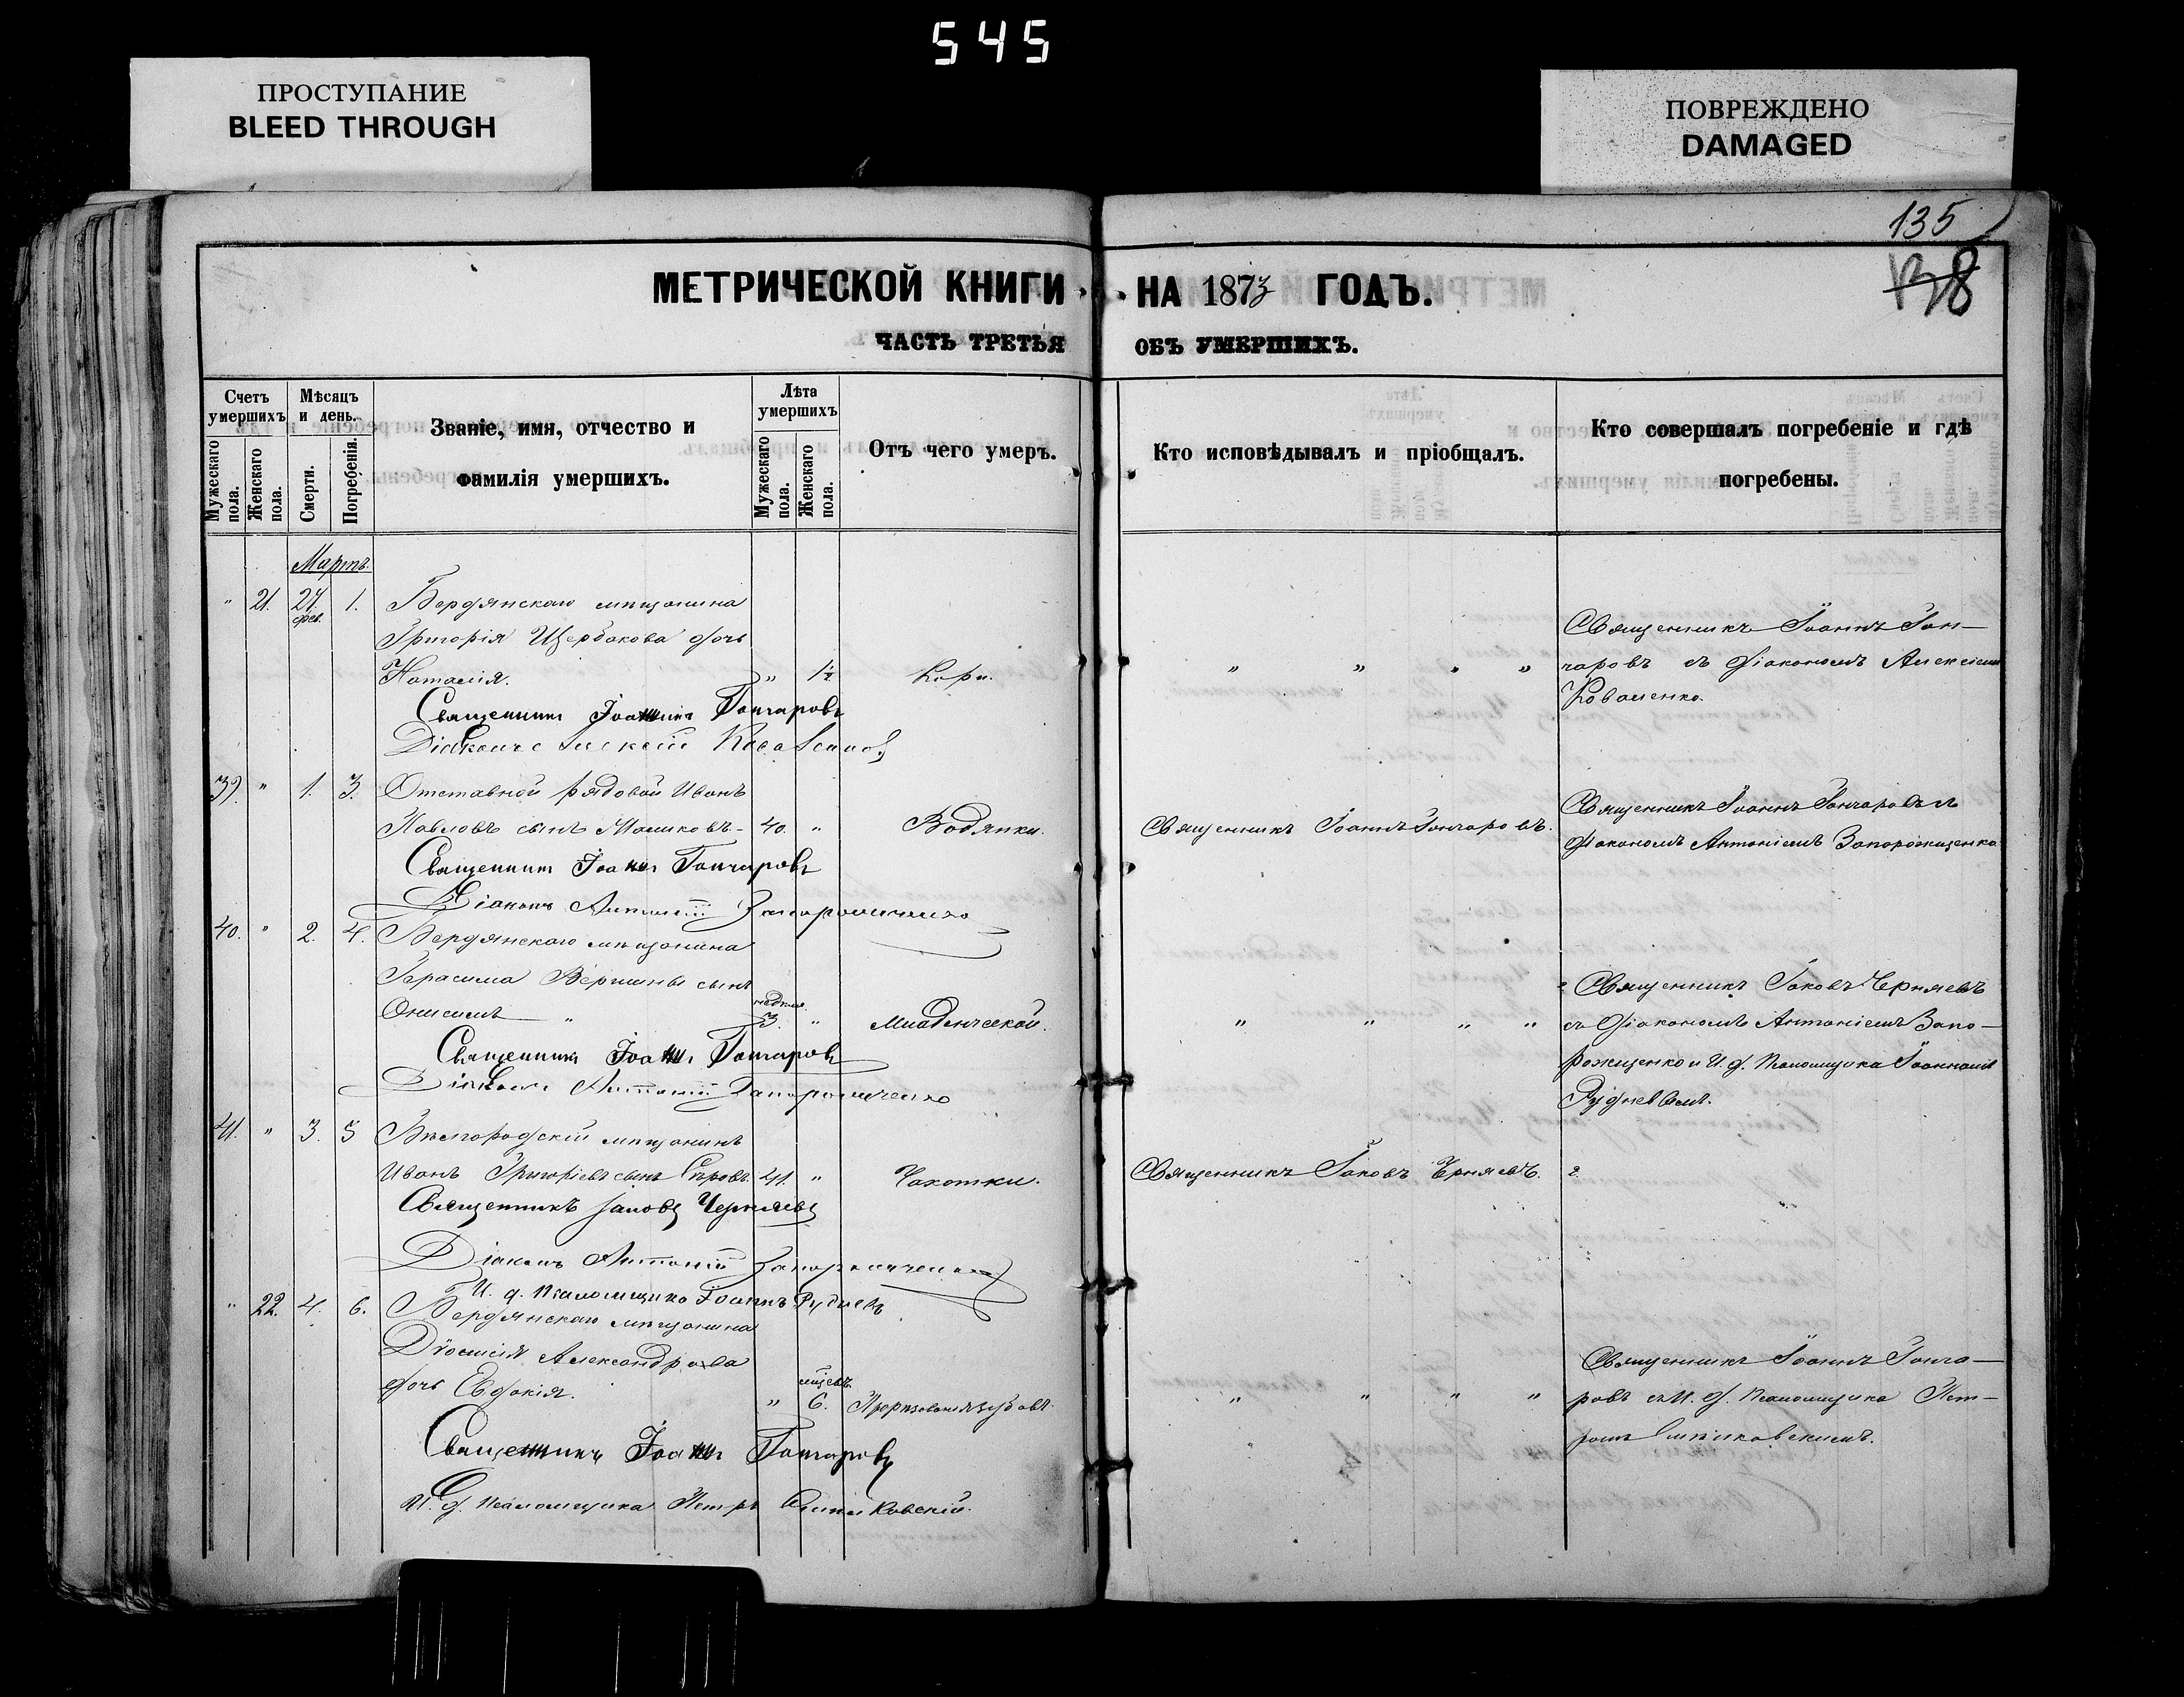 545
ПРОСТУПАНИЕ
BLEED THROUGH
ПОВРЕЖДЕНО
DAMAGED
135
138
МЕТРИЧЕСКОЙ КНИГИ НА 1873 ГОДЪ.
ЧАСТЬ ТРЕТЬЯ ОБЪ УМЕРШИХЪ.
Счетъ умершихъ
Мужескаго пола.
Женскаго пола.
Мѣсяцъ и день.
Смерти.
Погребенія.
Званіе, имя, отчество и
фамилія умершихъ.
Лѣта умершихъ
Мужескаго пола.
Женскаго пола.
Отъ чего умеръ.
Кто исповѣдывалъ и пріобщалъ.
Кто совершалъ погребеніе и гдѣ
погребены.
Мартъ.
" 21. 27. фев. 1. Бердянскаго мѣщанина
Григорія Щербакова дочь
Наталія. " 1½ Кори. " " " "
Священникъ Іоаннъ Гон-
чаровъ съ діакономъ Алексіемъ
Коваленко.
Священникъ Іоаннъ Гончаровъ
Діаконъ Алексій
39. " 1. 3. Отставной рядовой Иванъ
Павловъ сынъ Машковъ - 40. " Водянки. Священникъ Іоаннъ Гончаровъ.
Священникъ Іоаннъ Гончаровъ съ
діакономъ Антоніемъ Запорожченко
Священникъ Іоаннъ Гончаровъ
Діаконъ Антоній Запорожченко
40. " 2. 4. Бердянскаго мѣщанина
Герасима Вершины сынъ
Онисимъ " недѣли 3. " Младенческой. " " " "
Священникъ Іаковъ Черняевъ
съ діакономъ Антоніемъ Запо-
рожченко и И. д. Псаломщика Іоанномъ
Рудневымъ.
Священникъ Іоаннъ Гончаровъ
Діаконъ Антоній Запорожченко
41. " 3. 5 Бѣлгородскій мѣщанинъ
Иванъ Григорьевъ сынъ 41. " Чахотки. Священникъ Іаковъ Черняевъ.
Священникъ Іаковъ Черняевъ
Діаконъ Антоній Запорожченко
И. д. Псаломщика Іоаннъ Рудневъ
" 22. 4. 6. Бердянскаго мѣщанина
Діонисія Александрова
дочь Евдокія. " мѣсяцъ 6. Прорѣзыванія зубовъ. " " " "
Священникъ Іоаннъ Гонча-
ровъ съ И. д. Псаломщика Пет-
ромъ
Священникъ Іоаннъ Гончаровъ
И. д. Псаломщика Петръ